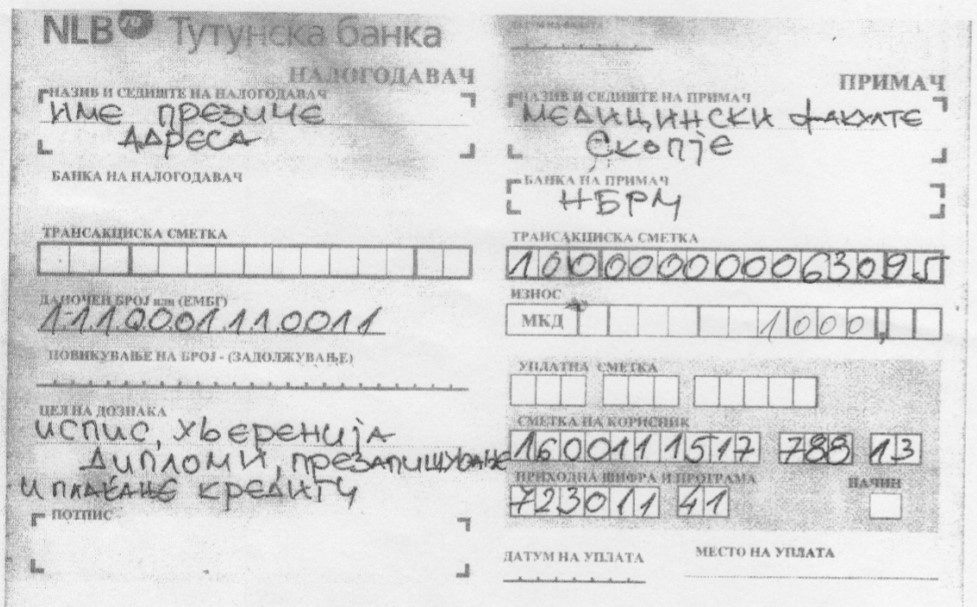 NLB Тутунска банка
НАЛОГОДАВАЧ
НАЗИВ И СЕДИШТЕ НА НАЛОГОДАВАЧ
ИМЕ ПРЕЗИМЕ
АДРЕСА
БАНКА НА НАЛОГОДАВАЧ
ТРАНСАКЦИСКА СМЕТКА
ДАНОЧЕН БРОЈ или (ЕМБГ)
1110001110011
ПОВИКУВАЊЕ НА БРОЈ - (ЗАДОЛЖУВАЊЕ)
ЦЕЛ НА ДОЗНАКА
ИСПИС, УВЕРЕНИЈА
ДИПЛОМИ, ПРЕЗАПИШУВАЊЕ
И ПЛАЌАЊЕ КРЕДИТИ
ПОТПИС
ПРИМАЧ
НАЗИВ И СЕДИШТЕ НА ПРИМАЧ
МЕДИЦИНСКИ ФАКУЛТЕ
СКОПЈЕ
БАНКА НА ПРИМАЧ
НБРМ
ТРАНСАКЦИСКА СМЕТКА
100000000063095
ИЗНОС
МКД 1000,
УПЛАТНА СМЕТКА
СМЕТКА НА КОРИСНИК
1600111517 788 13
ПРИХОДНА ШИФРА И ПРОГРАМА
НАЧИН
723011 41
ДАТУМ НА УПЛАТА
МЕСТО НА УПЛАТА